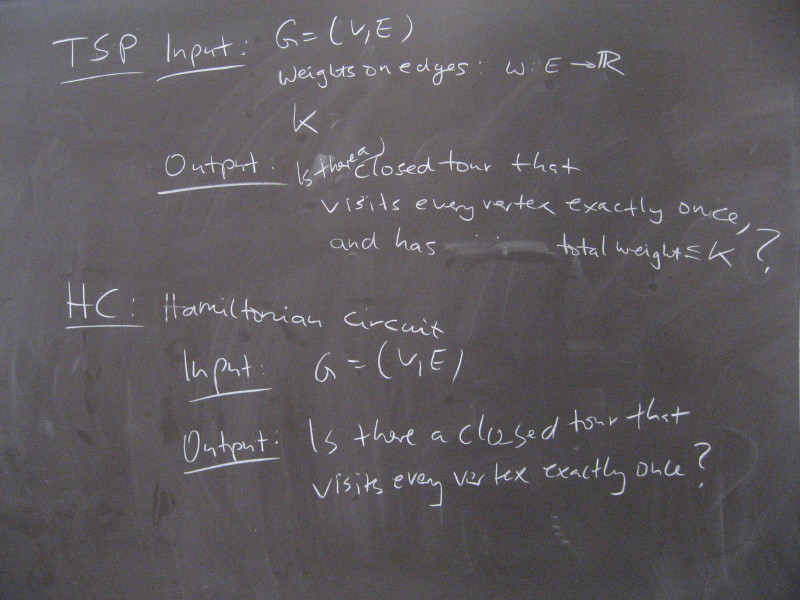 TSP Input: G=(V,E)
Weights on edges: w: E→ℝ
K
Output: Is there a closed tour that
visits every vertex exactly once,
and has total weight ≤ K?
HC: Hamiltonian Circuit
Input: G=(V,E)
Output: Is there a closed tour that
visits every vertex exactly once?